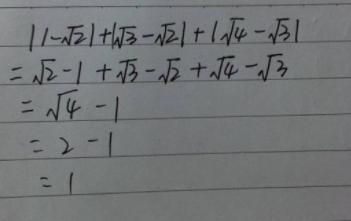 |1-√2|+|√3-√2|+|√4-√3|
=√2-1+√3-√2+√4-√3
=√4-1
=2-1
=1